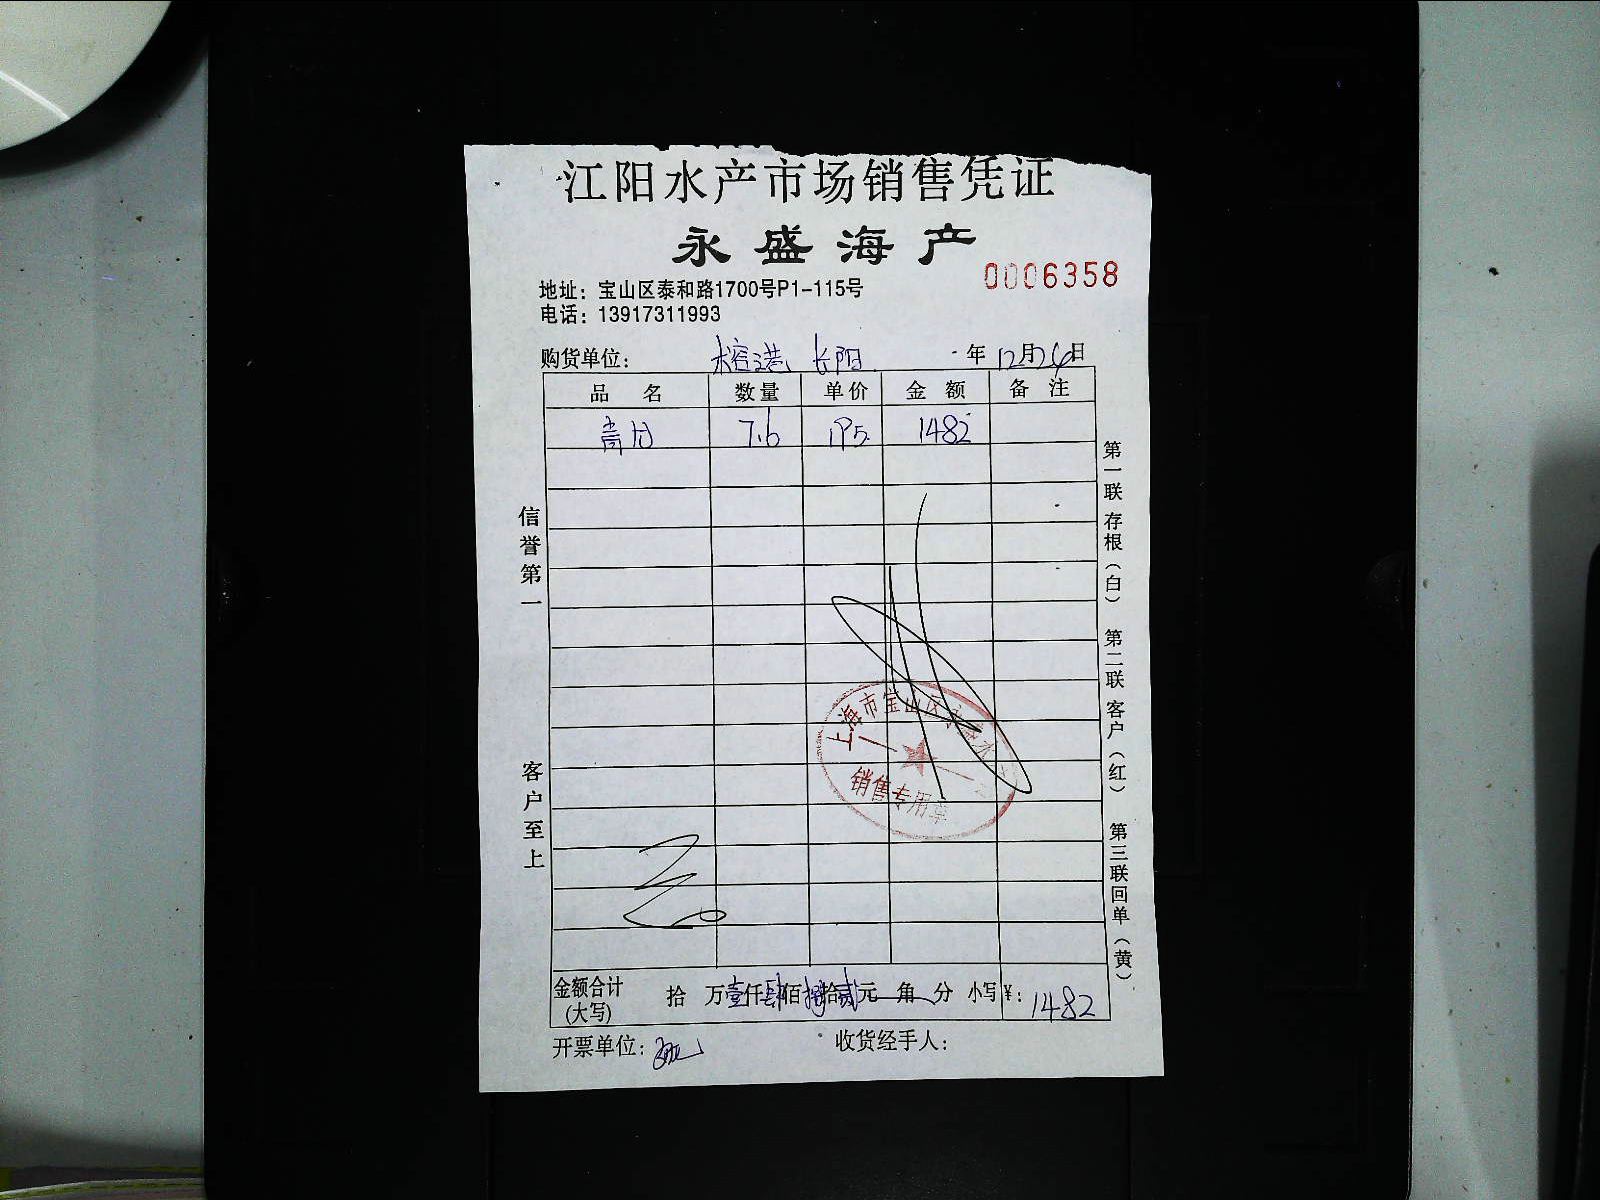 江阳水产市场销售凭证
永盛海产
0006358
地址：宝山区泰和路1700号P1-115号
电话：13917311993
购货单位： 榕港 长阳 年 12月24日
品 名 数量 单价 金 额 备 注
7.6 195 1482
信誉第一
客户至上
第一联 存根（白） 第二联 客户（红） 第三联回单（黄）
上海市宝山区
销售专用章
金额合计 拾 万壹仟肆佰捌拾贰元 角 分 小写￥：1482
(大写)
开票单位： 收货经手人：